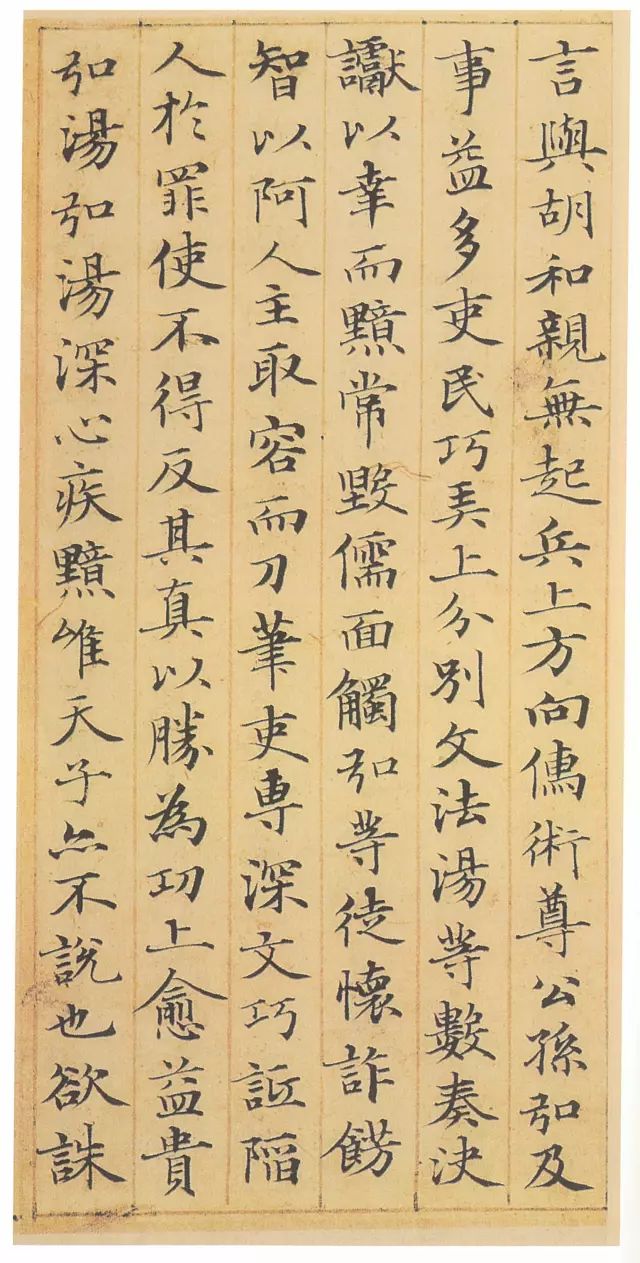 言與胡和親無起兵上方向儒術尊公孫弘及
事益多吏民巧弄上分別文法湯等數奏決
讞以幸而黯常毀儒面觸弘等徒懷詐飾
智以阿人主取容而刀筆吏專深文巧詆陷
人於罪使不得反其真以勝為功上愈益貴
弘湯弘湯深心疾黯唯天子亦不說也欲誅